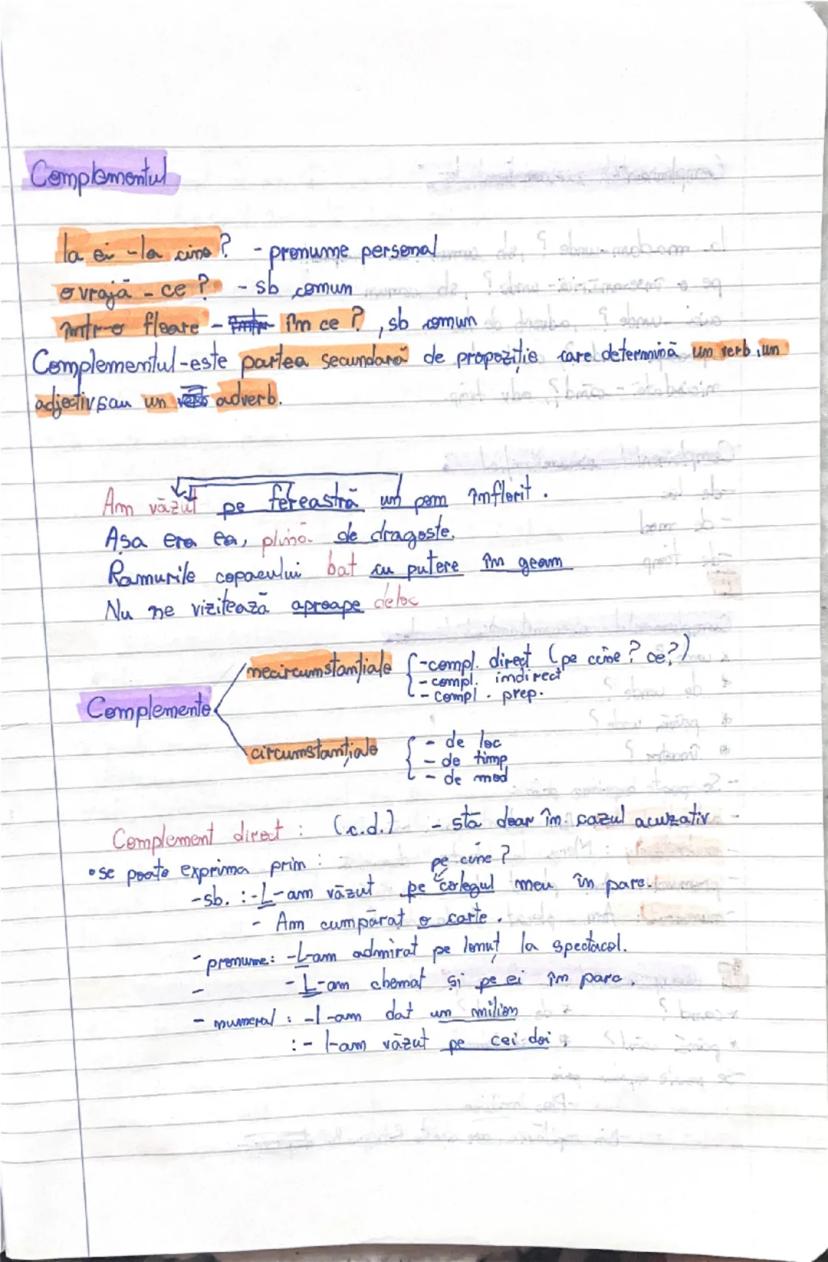 Complementul
la ei - la cine? - pronume personal
o vrajă - ce? - sb comun
într-o floare - în ce?, sb comun
Complementul - este partea secundară de propoziție care determină un verb, un
adjectiv sau un adverb.
Am văzut pe fereastră un pom înflorit.
Așa era ea, plină de dragoste.
Ramurile copacului bat cu putere în geam
Nu ne vizitează aproape deloc
Complemente
necircumstanțiale
- compl. direct (pe cine? ce?)
- compl. indirect
- compl. prep.
circumstanțiale
- de loc
- de timp
- de mod
Complement direct: (c.d.) - stă doar în cazul acuzativ
• se poate exprima prin: pe cine?
- sb. : - L-am văzut pe colegul meu în parc.
- Am cumpărat o carte.
- pronume: - L-am admirat pe Ionuț la spectacol.
- - L-am chemat și pe ei în parc.
- numeral: - I-am dat un milion
: - I-am văzut pe cei doi.